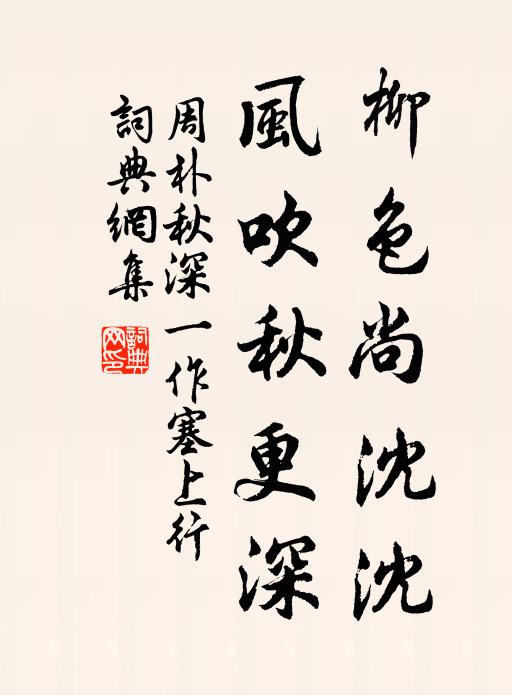 柳色尚沈沈
風吹秋更深
周朴秋深一作塞上行
詞典網集
詞典网印